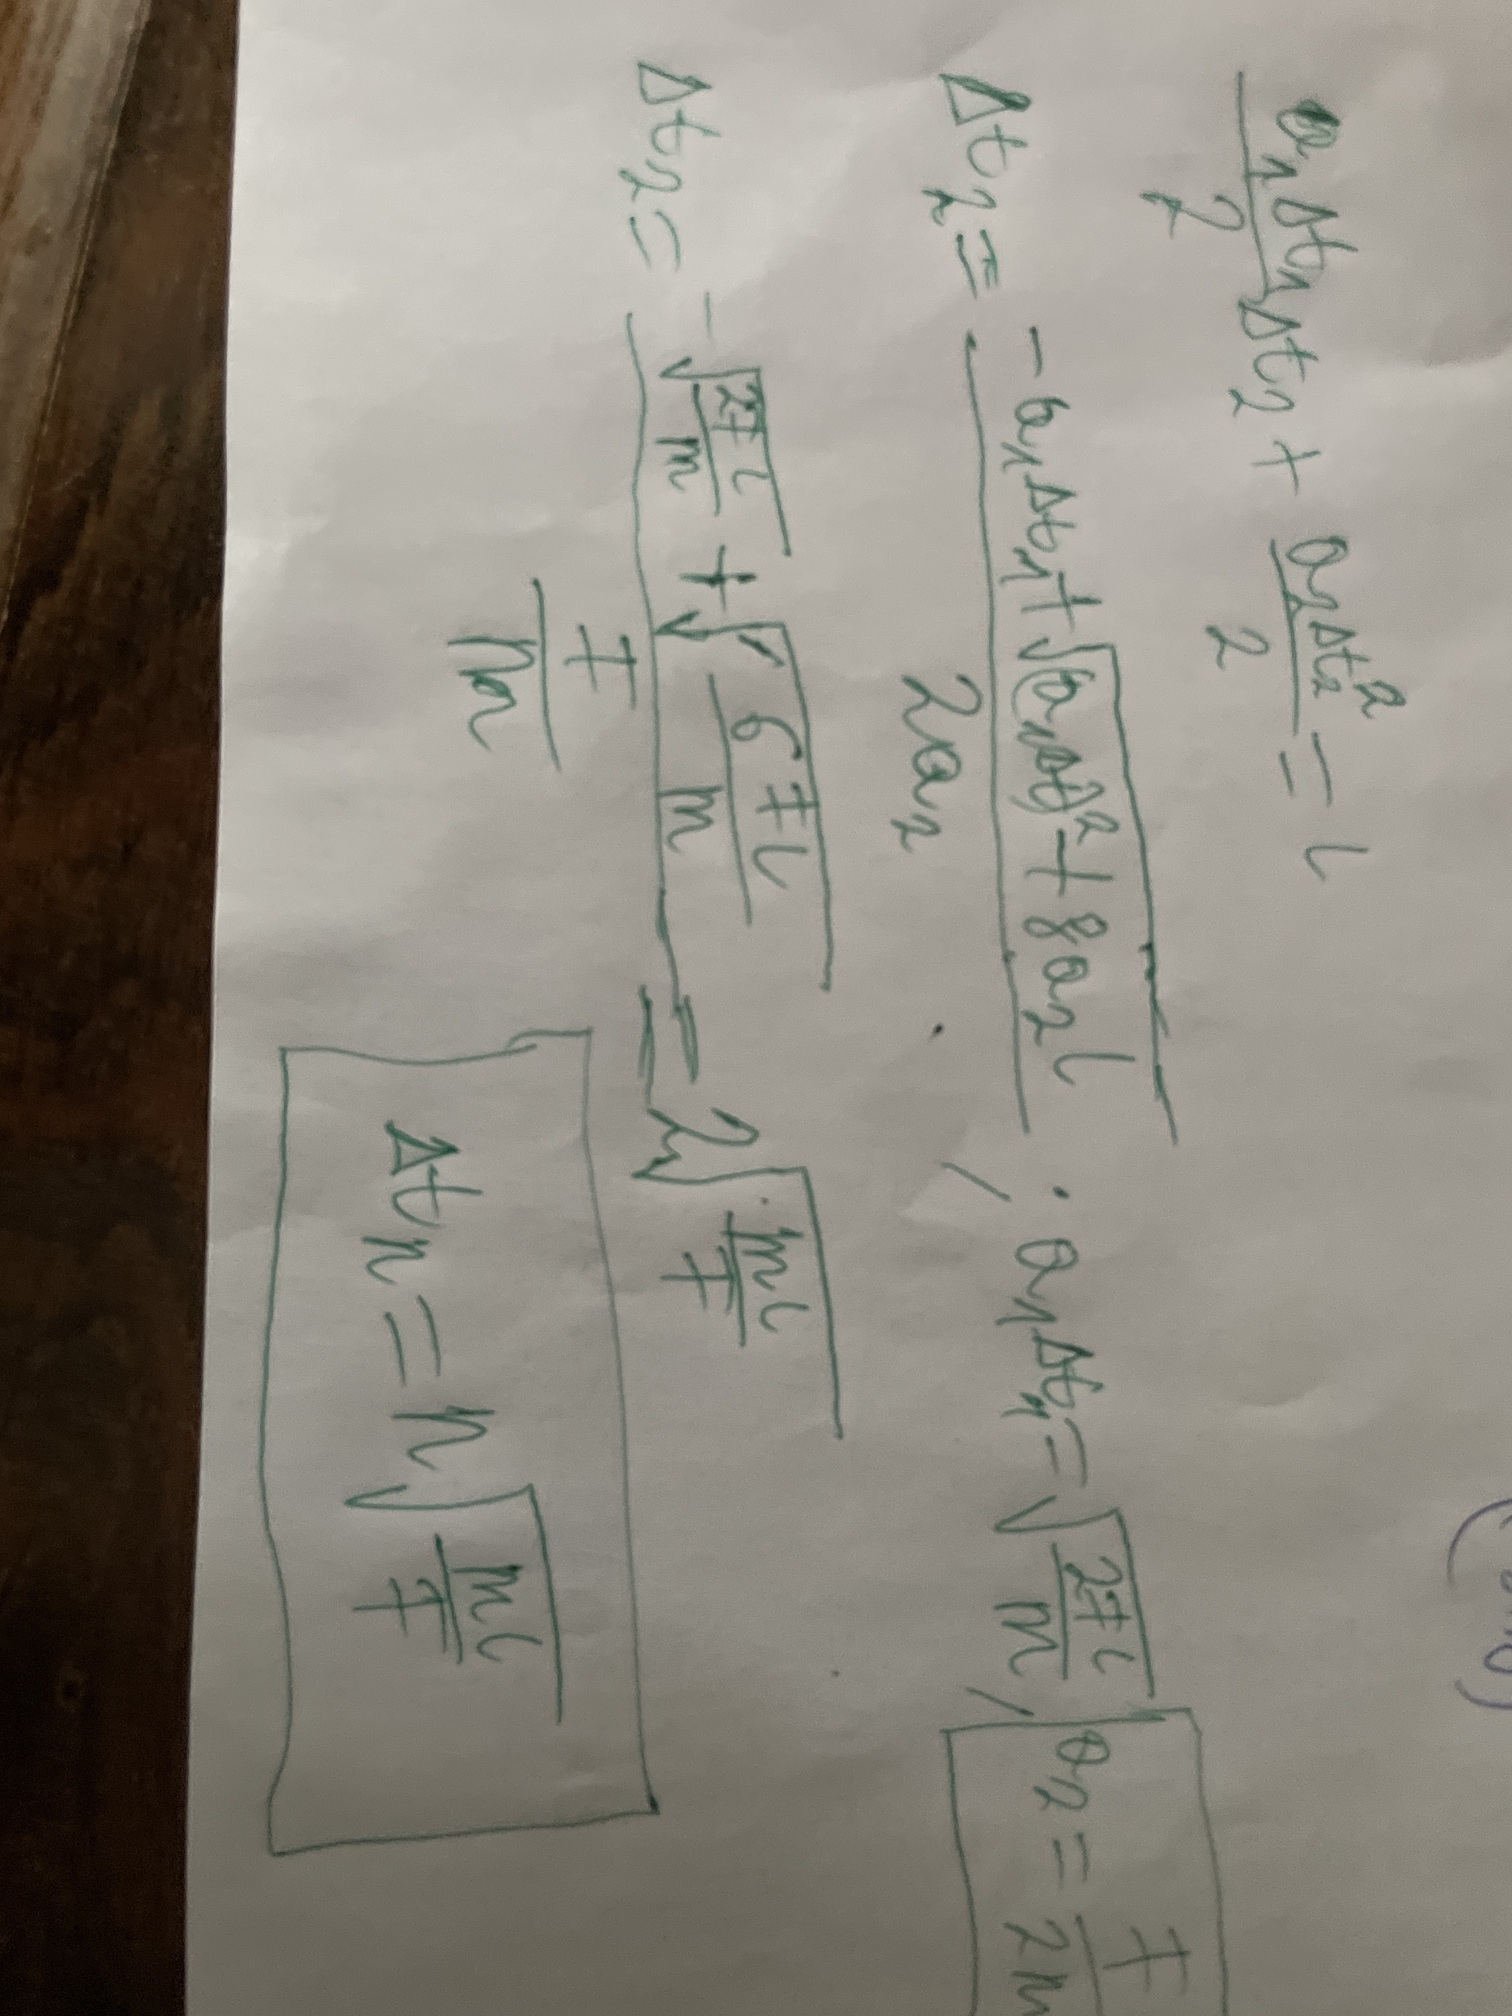 a₁Δt₁/2 Δt₂ + a₂Δt₂²/2 = l
Δt₂ = (-a₁Δt₁ + √((a₁Δt)² + 8a₂l))/(2a₂) ; a₁Δt₁ = √(2Fl/m), a₂ = F/2m
Δt₂ = (-√(2Fl/m) + √(6Fl/m))/(F/m) = 2√(ml/F)
Δtn = n√(ml/F)